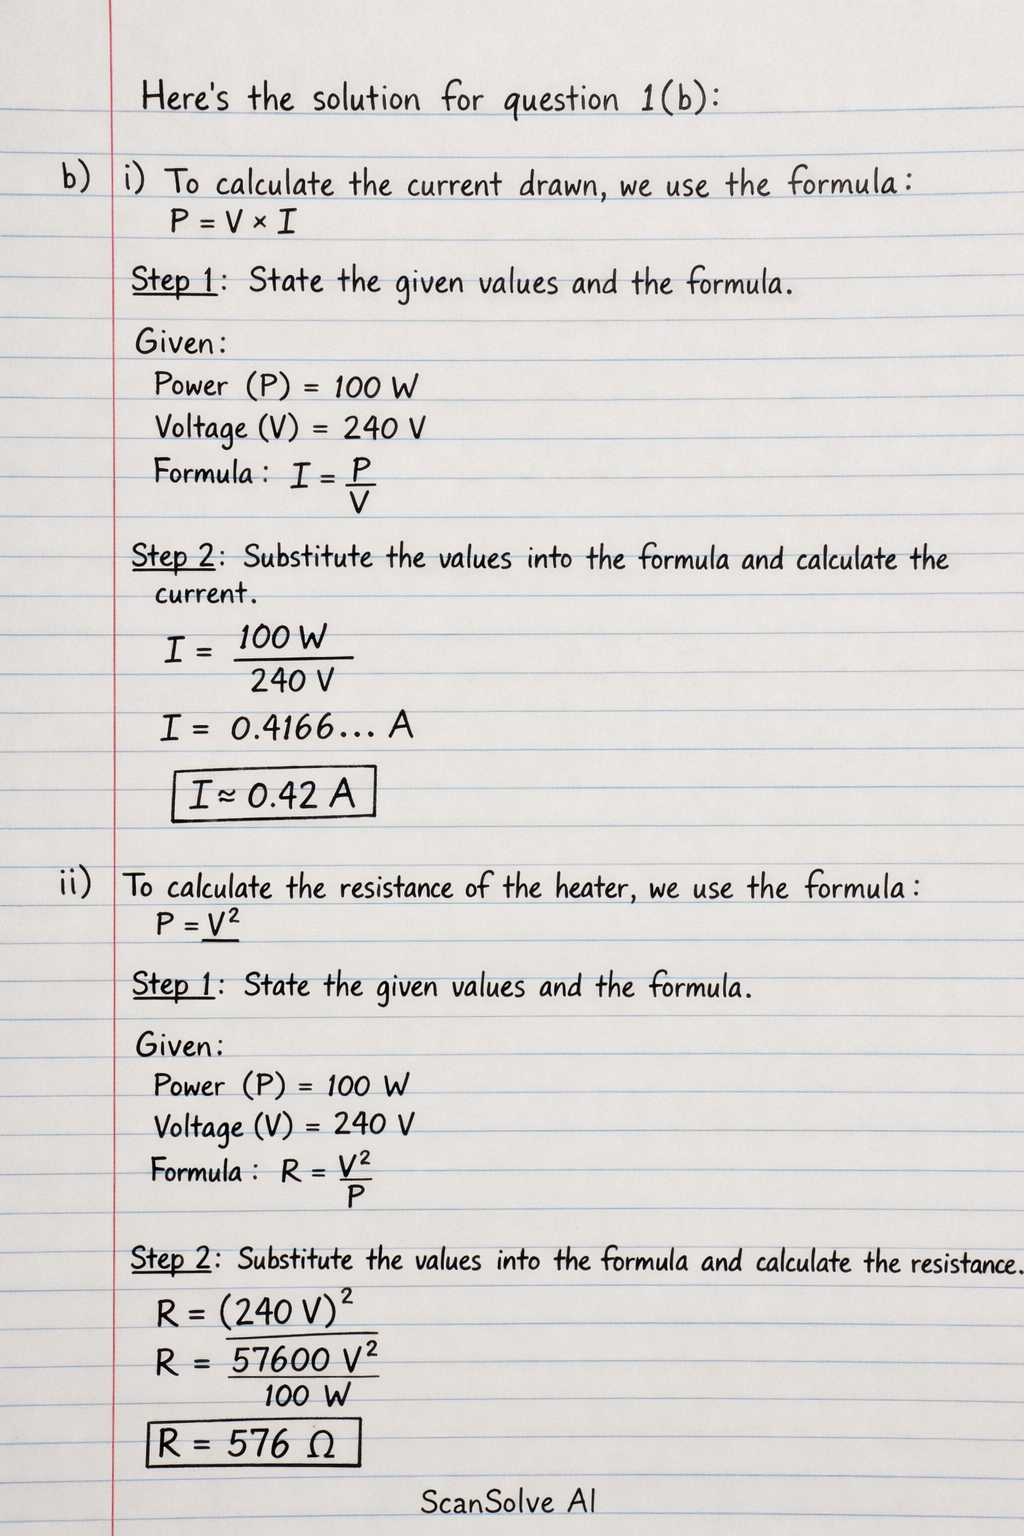 Here's the solution for question 1(b):
b) i) To calculate the current drawn, we use the formula:
P = V × I
Step 1: State the given values and the formula.
Given:
Power (P) = 100 W
Voltage (V) = 240 V
Formula: I = P
V
Step 2: Substitute the values into the formula and calculate the
current.
I = 100 W
240 V
I = 0.4166... A
I ≈ 0.42 A
ii) To calculate the resistance of the heater, we use the formula:
P = V²
Step 1: State the given values and the formula.
Given:
Power (P) = 100 W
Voltage (V) = 240 V
Formula: R = V²
P
Step 2: Substitute the values into the formula and calculate the resistance.
R = (240 V)²
R = 57600 V²
100 W
R = 576 Ω
ScanSolve AI